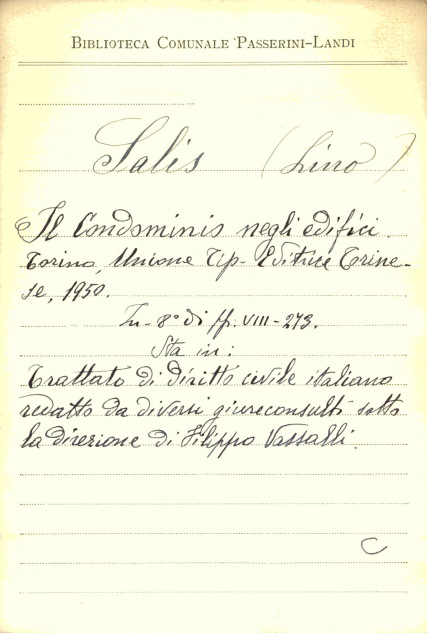 BIBLIOTECA COMUNALE PASSERINI-LANDI
Salis (Lino)
Il Condominio negli edifici.
Torino, Unione Tip- Editrice Torine-
se, 1950.
In- 8° di pp. VIII-273.
Sta in:
Trattato di diritto civile italiano
redatto da diversi giureconsulti sotto
la direzione di Filippo Vassalli.
C